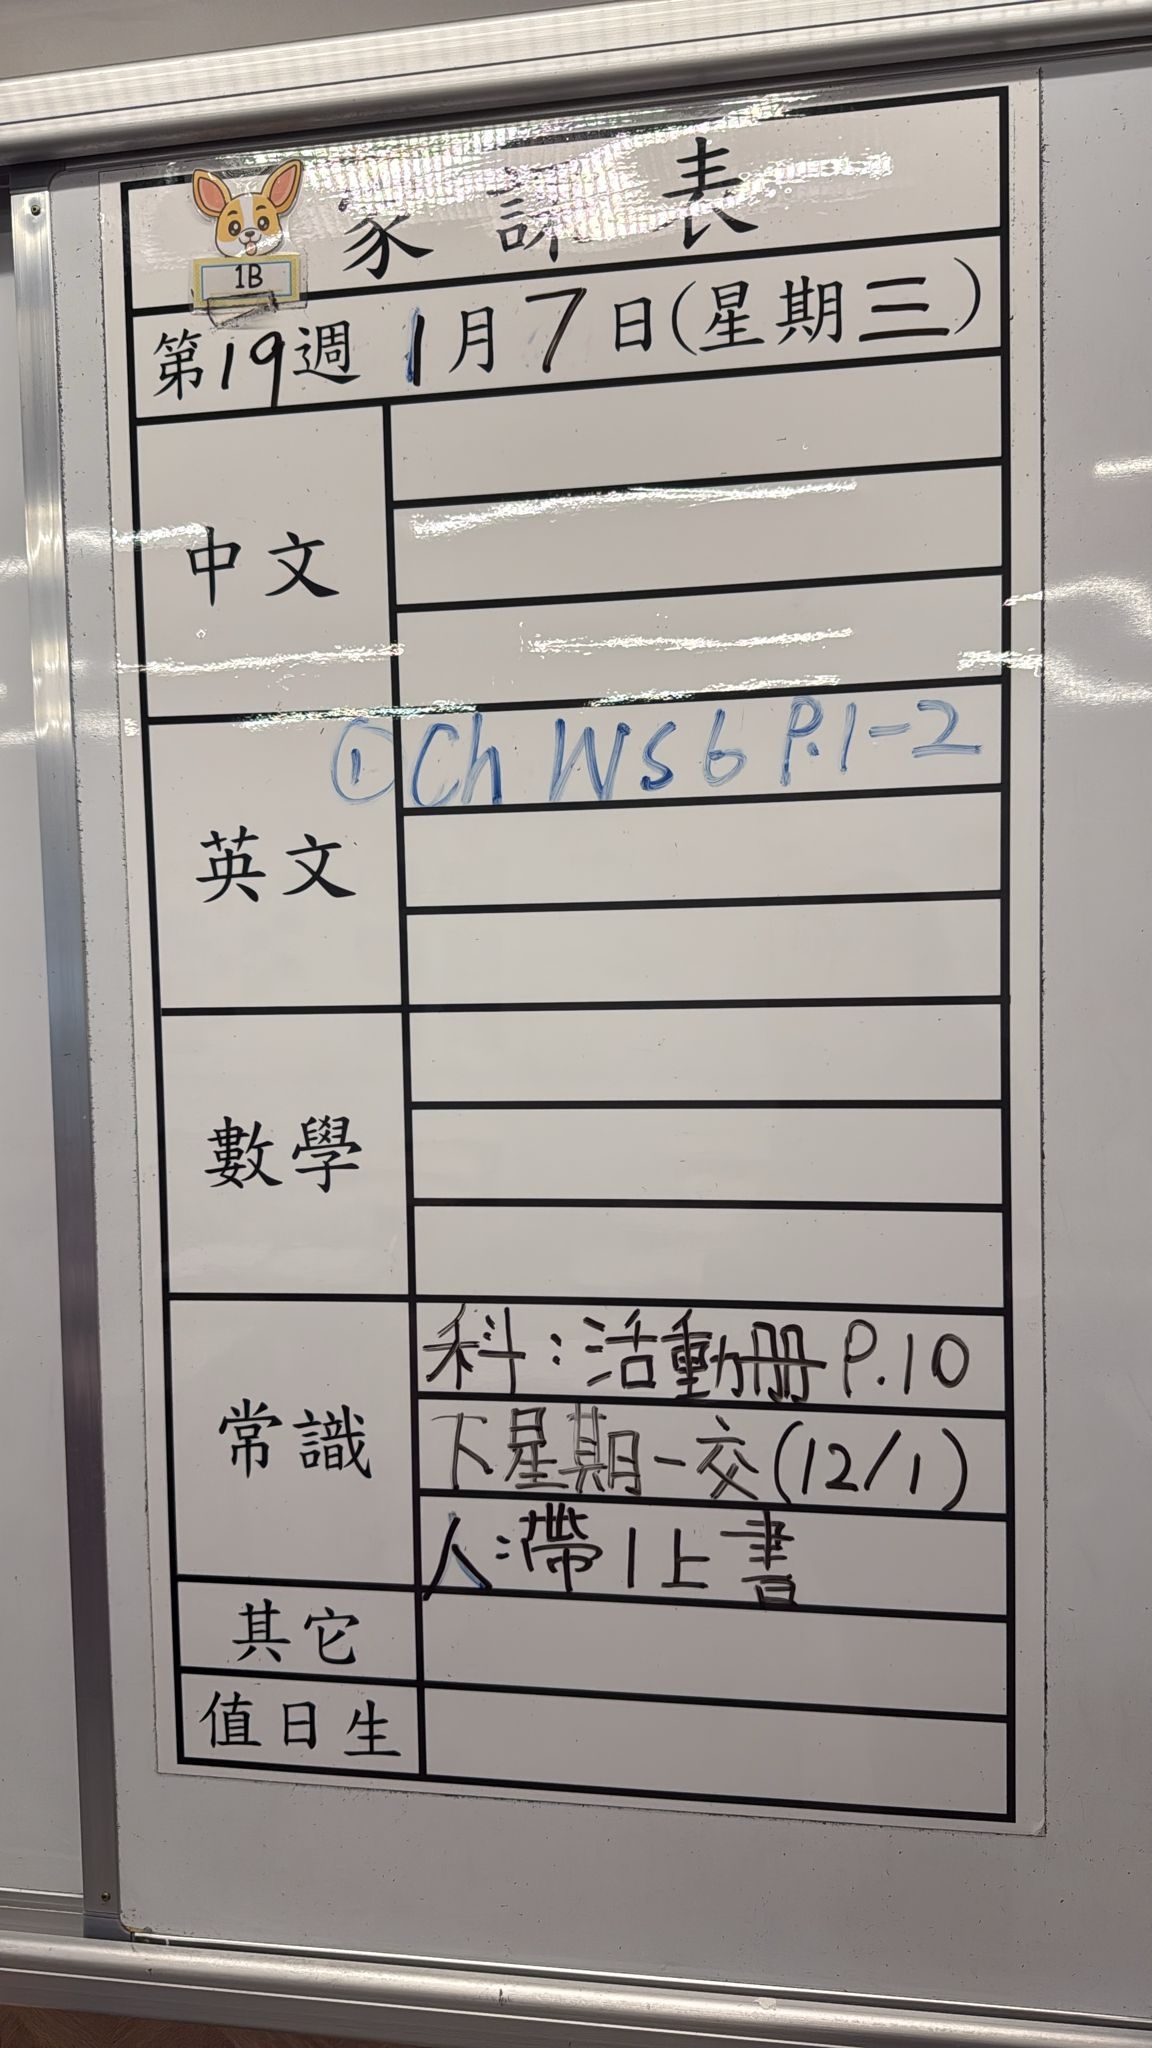 家課表
1B
第19週 1月7日(星期三)
中文
英文
① Ch WS 6 P.1-2
數學
常識
科:活動冊 P.10
下星期一交(12/1)
人:帶1上書
其它
值日生